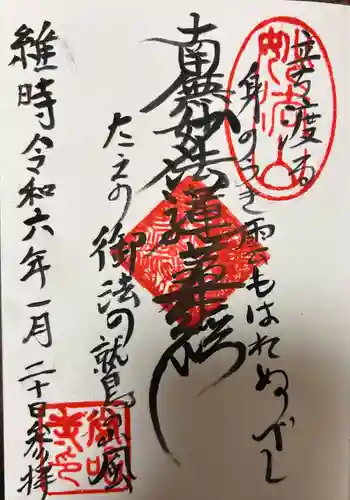 妙法山
立ち渡る
身のうき雲もはれぬべし
南無妙法蓮華経
たえの御法の鷲山風
維時令和六年一月二十日参拝